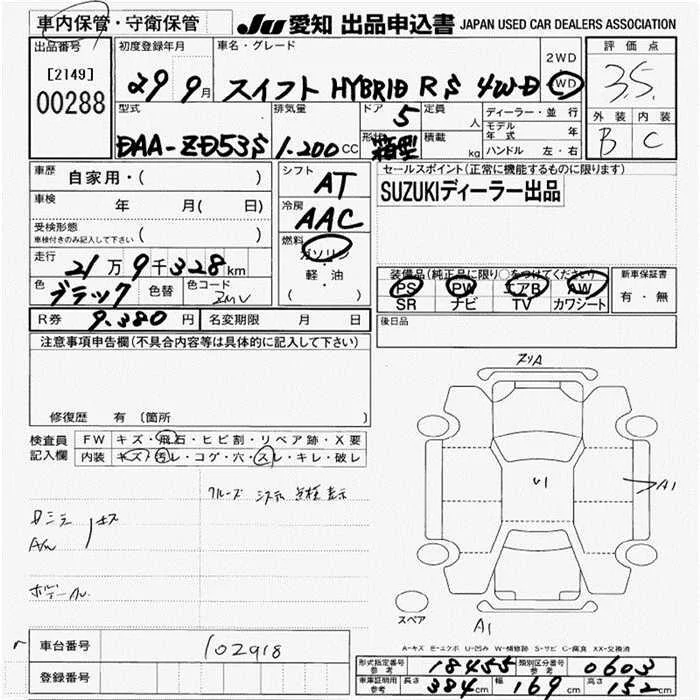 車内保管・守衛保管 JU 愛知 出品申込書 JAPAN USED CAR DEALERS ASSOCIATION
出品番号 初度登録年月 車名・グレード 2WD 評価点
[2149] 29 9月 スイフト HYBRID RS 4WD 4WD 3.5
00288
型式 排気量 ドア 5 定員 人 ディーラー・並行 外装 内装
DAA-ZD53S 1.200CC 形状 箱型 積載 kg モデル年式 年 B C
ハンドル 左・右
車歴 自家用・( ) シフト AT セールスポイント(正常に機能するものに限ります)
車検 年 月( 日) 冷房 AAC SUZUKIディーラー出品
受検形態
車検付きのみ記入して下さい ( ) 燃料 ガソリン
走行 21万9千328km ・軽油 装備品(純正品に限り○をつけてください) 新車保証書
色 ブラック 色替 色コード ZMV ( ) PS PW エアB AW 有・無
SR ナビ TV カワシート
R券 9.380円 名変期限 月 日 後日品
注意事項申告欄(不具合内容等は具体的に記入して下さい)
修復歴 有〔箇所 〕
検査員 FW キズ・飛石・ヒビ割・リペア跡・X要
記入欄 内装 キズ・汚レ・コゲ・穴・スレ・キレ・破レ
クルーズ システム 点検 表示
A1
U1
A1
スペア
A-キズ E-エクボ U-凹み W-補修跡 S-サビ C-腐食 XX-交換済
車台番号 102918
登録番号
形式指定番号参考 18455 類別区分番号参考 0603
車庫証明用参考 長さ 384cm 幅 169cm 高さ 152cm